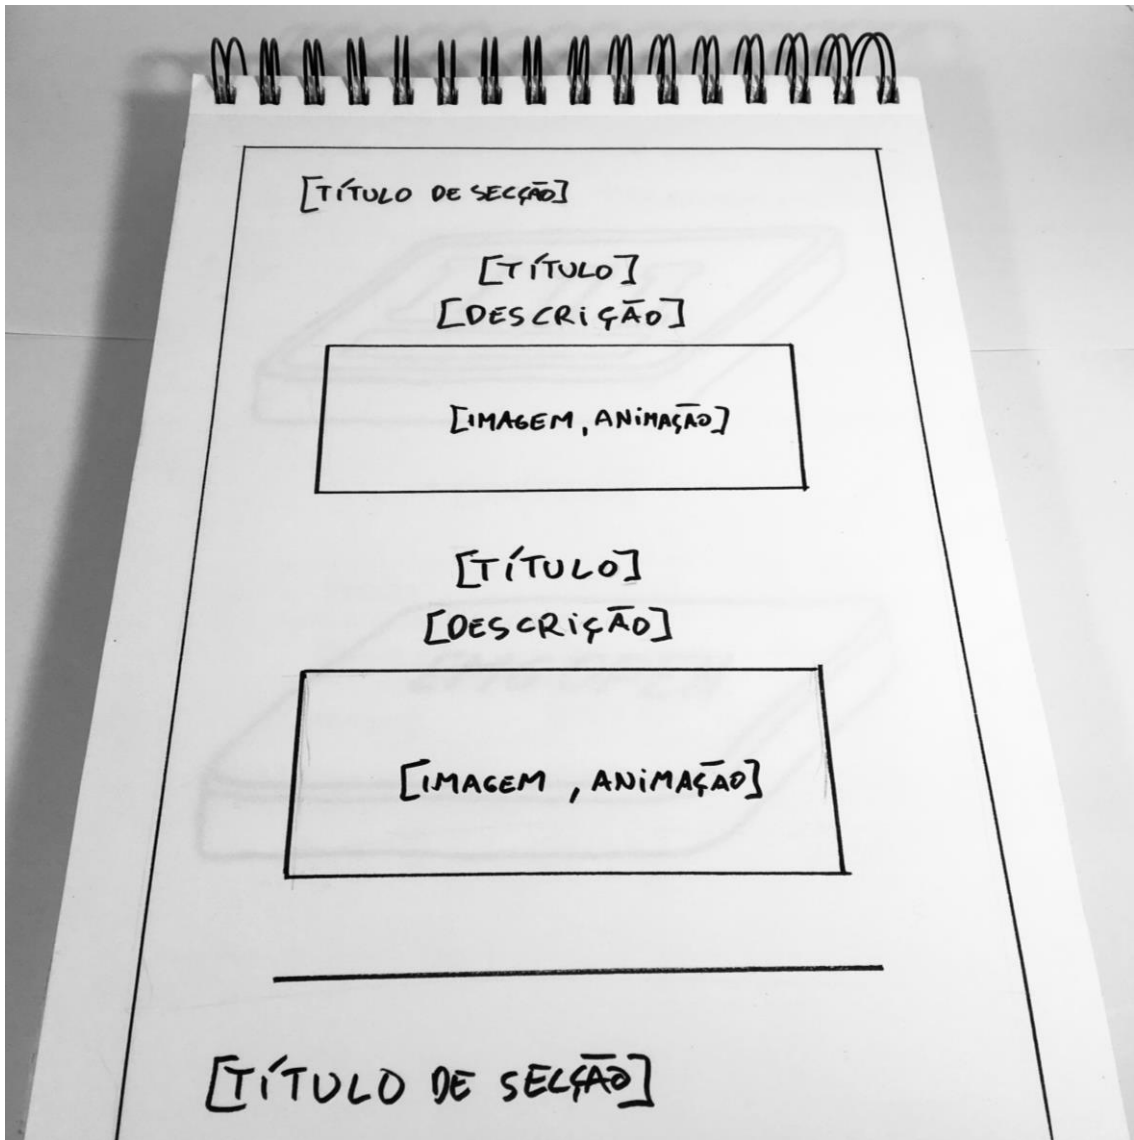 [TÍTULO DE SECÇÃO]
[TÍTULO]
[DESCRIÇÃO]
[IMAGEM, ANIMAÇÃO]
[TÍTULO]
[DESCRIÇÃO]
[IMAGEM, ANIMAÇÃO]
[TÍTULO DE SECÇÃO]